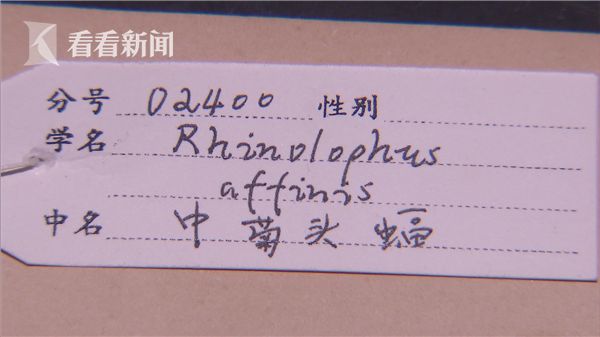 看看新闻
分号 02400 性别
学名 Rhinolophus
affinis
中名 中菊头蝠